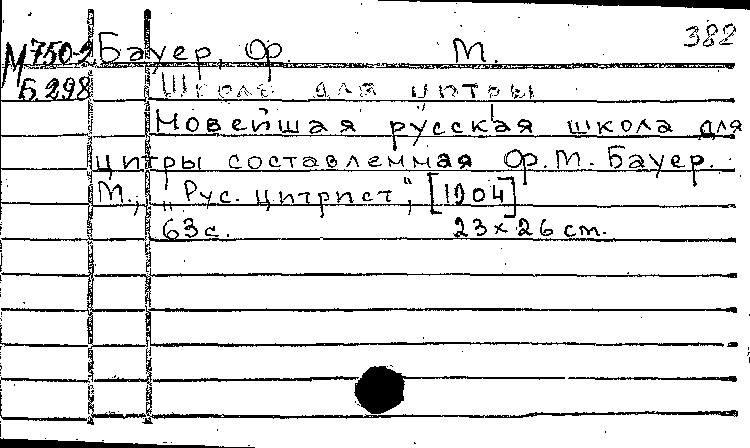 382
М 750-2 Бауер, Ф. М.
Б.298 Школа для цитры
Новейшая русская школа для
цитры составленная Ф.М. Бауер.
М., "Рус. цитрист", [1904]
63 с. 23 × 26 cm.